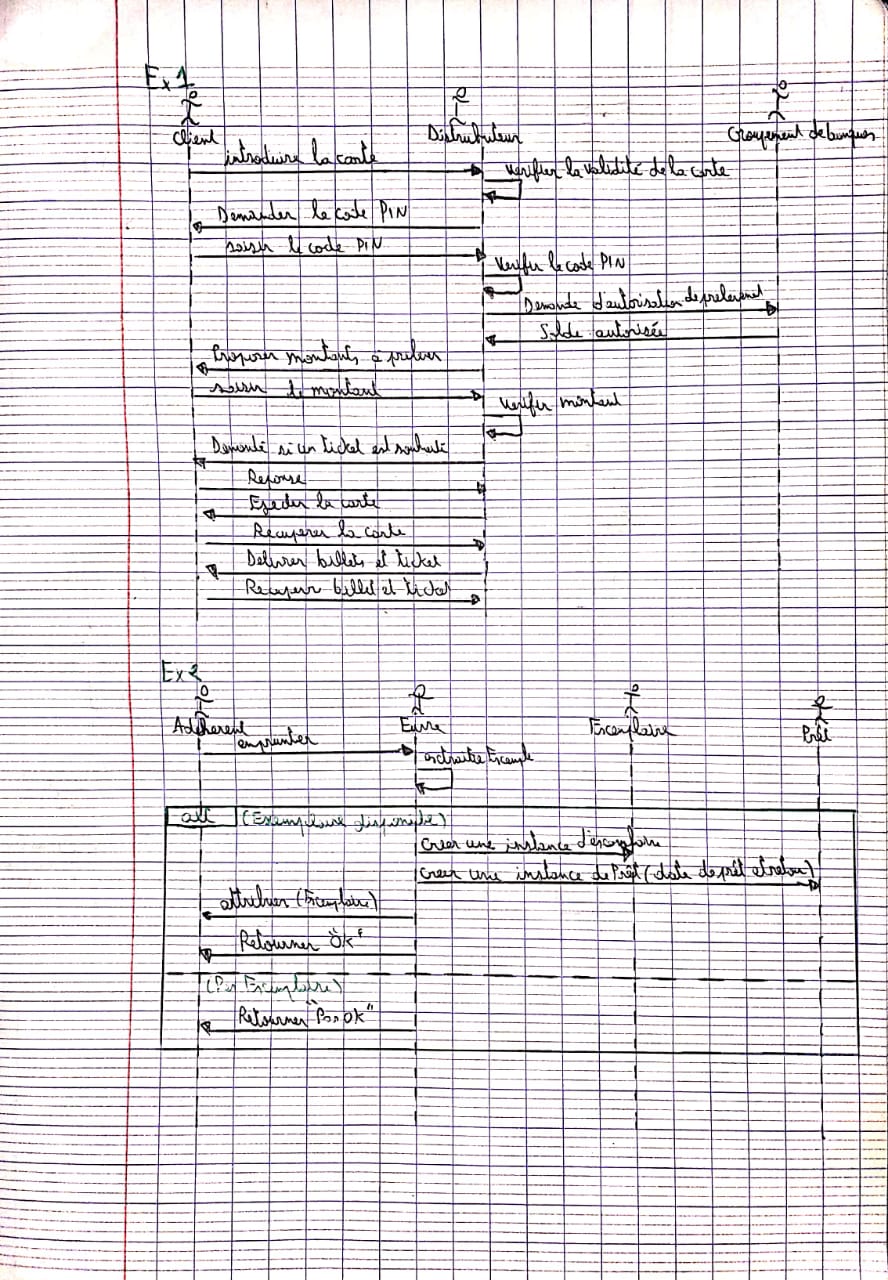 Ex 1
Client Distrubuteur Groupement de banques
introduire la carte
verifier la validité de la carte
Demander le code PIN
saisir le code PIN
Verifier le code PIN
Demande d'autorisation de prelevement
Solde autorisée
Proposer montants à prelever
saisir le montant
verifier montant
Demandé si un ticket est souhaité
Reponse
Ejecter la carte
Recuperer la carte
Delivrer billets et ticket
Recuperer billet et ticket
Ex 2
Adherent Exemplaire Prêt
emprunter
alt (Exemplaire disponible)
Creer une instance d'exemplaire
creer une instance de Prêt (date de prêt et retour)
attribuer (Exemplaire)
Retourner "OK"
(Pas Exemplaire)
Retourner "Pas OK"